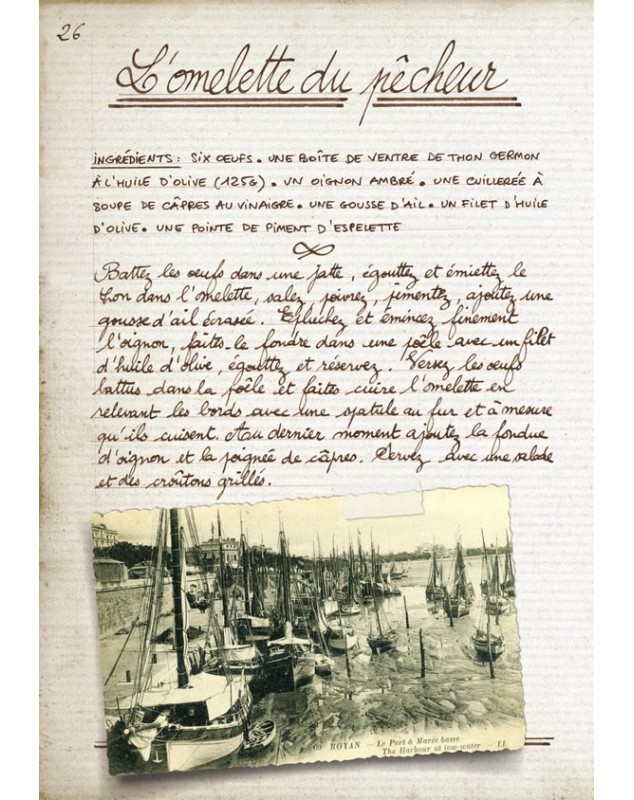 26
L'omelette du pêcheur
INGRÉDIENTS : SIX OEUFS. UNE BOÎTE DE VENTRE DE THON GERMON
À L'HUILE D'OLIVE (125G). UN OIGNON AMBRÉ. UNE CUILLERÉE À
SOUPE DE CÂPRES AU VINAIGRE. UNE GOUSSE D'AIL. UN FILET D'HUILE
D'OLIVE. UNE POINTE DE PIMENT D'ESPELETTE
Battez les oeufs dans une jatte, égouttez et émiettez le
thon dans l'omelette, salez, poivrez, pimentez, ajoutez une
gousse d'ail écrasée. Epluchez et émincez finement
l'oignon, faites-le fondre dans une poêle avec un filet
d'huile d'olive, égouttez et réservez. Versez les oeufs
battus dans la poêle et faites cuire l'omelette en
relevant les bords avec une spatule au fur et à mesure
qu'ils cuisent. Au dernier moment ajoutez la fondue
d'oignon et la poignée de câpres. Servez avec une salade
et des croûtons grillés.
69 ROYAN - Le Port à Marée basse.
The Harbour at low-water - LL